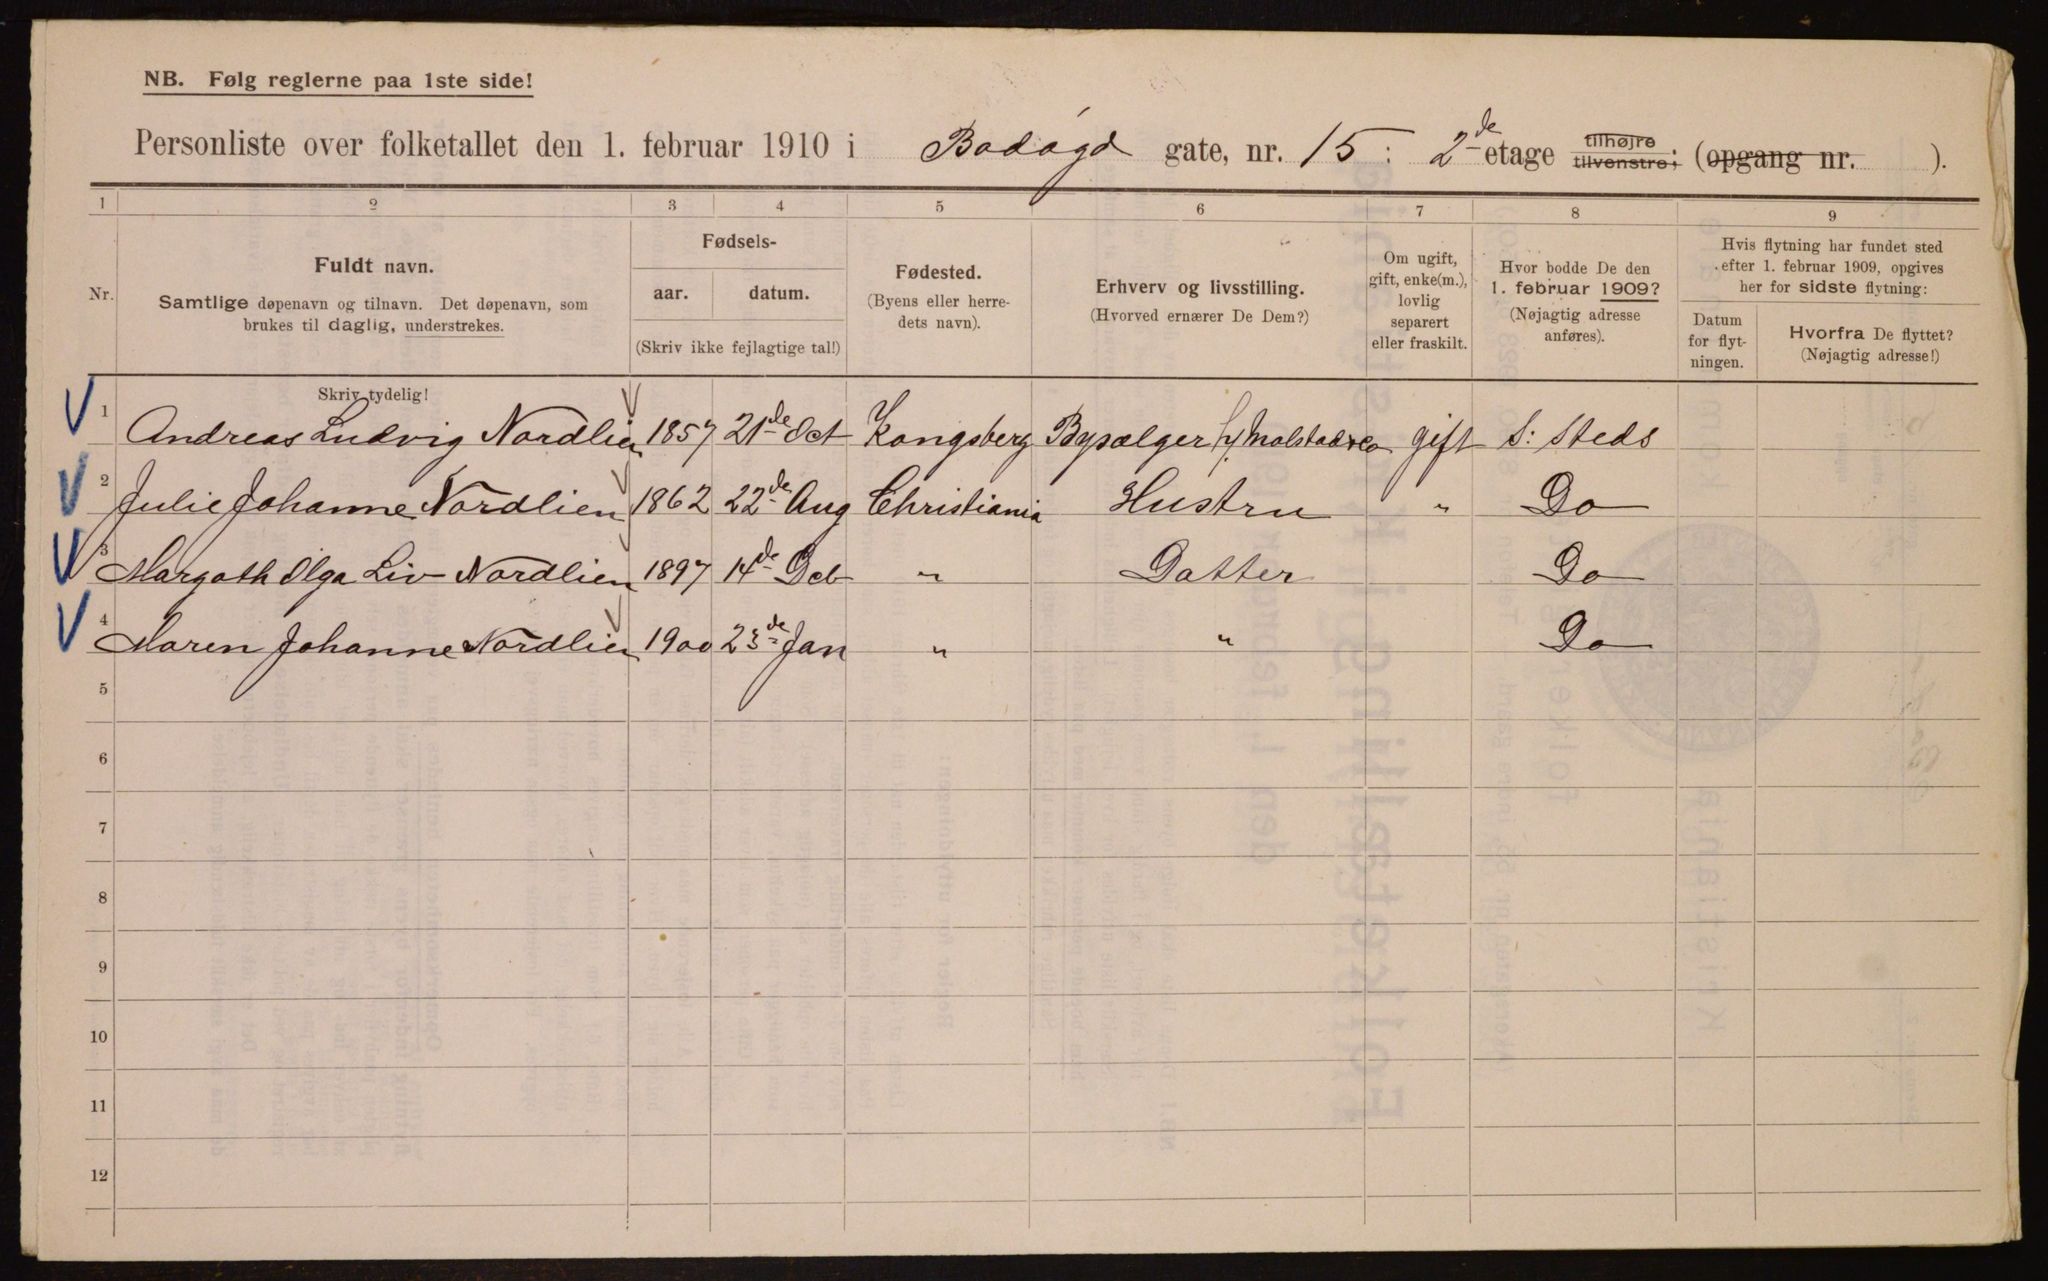 NB. Følg reglerne paa 1ste side!
Personliste over folketallet den 1. februar 1910 i Bodøgd gate, nr. 15 : 2de etage tilhøjre tilvenstre; (opgang nr. ).
1 2 3 4 5 6 7 8 9
Nr.
Fuldt navn.
Samtlige døpenavn og tilnavn. Det døpenavn, som
brukes til daglig, understrekes.
Fødsels-
aar. datum.
(Skriv ikke fejlagtige tal!)
Fødested.
(Byens eller herre-
dets navn).
Erhverv og livsstilling.
(Hvorved ernærer De Dem?)
Om ugift,
gift, enke(m.),
lovlig
separert
eller fraskilt.
Hvor bodde De den
1. februar 1909?
(Nøjagtig adresse
anføres).
Hvis flytning har fundet sted
efter 1. februar 1909, opgives
her for sidste flytning:
Datum
for flyt-
ningen.
Hvorfra De flyttet?
(Nøjagtig adresse!)
Skriv tydelig!
1 Andreas Ludvig Nordlien 1857 21de Oct Kongsberg Bysælger f/ Molstad & Co gift S: Steds
2 Julie Johanne Nordlien 1862 22de Aug Christiania Hustru " Do
3 Margoth Olga Liv Nordlien 1897 14de " Datter Do
4 Maren Johanne Nordlien 1900 23de Jan " " Do
5
6
7
8
9
10
11
12